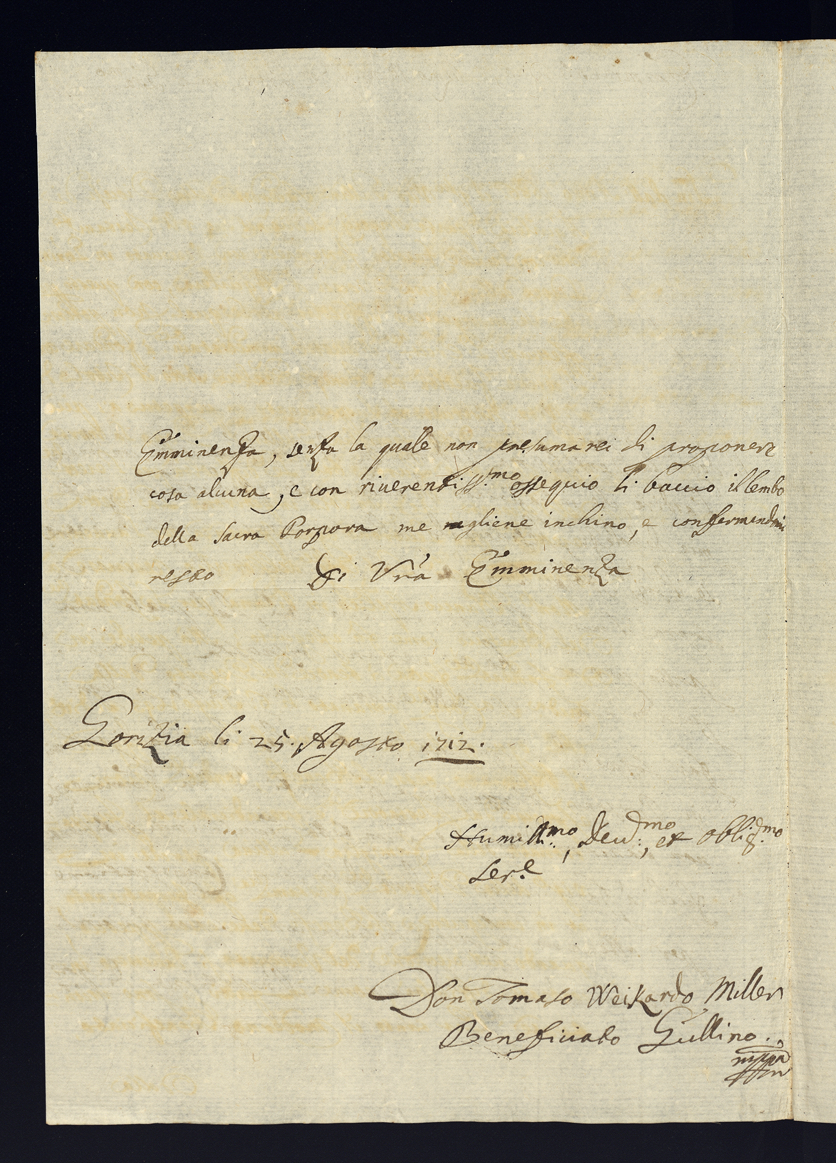 Emminenza, senza la quale non presumarei di proponerr
cosa alcuna, e con riverentiss.mo ossequio li baccio il lembo
della Sacra Porpora me ne gliene inchino, e confermandomi
resto Di Vr̃a Emminenza
Gorizia li 25. Agosto 1712.
Humill:mo, Deu:mo, et oblig:mo
Ser.e
Don Tomaso Weikardo Millers
Beneficiato Gullino.
mppa